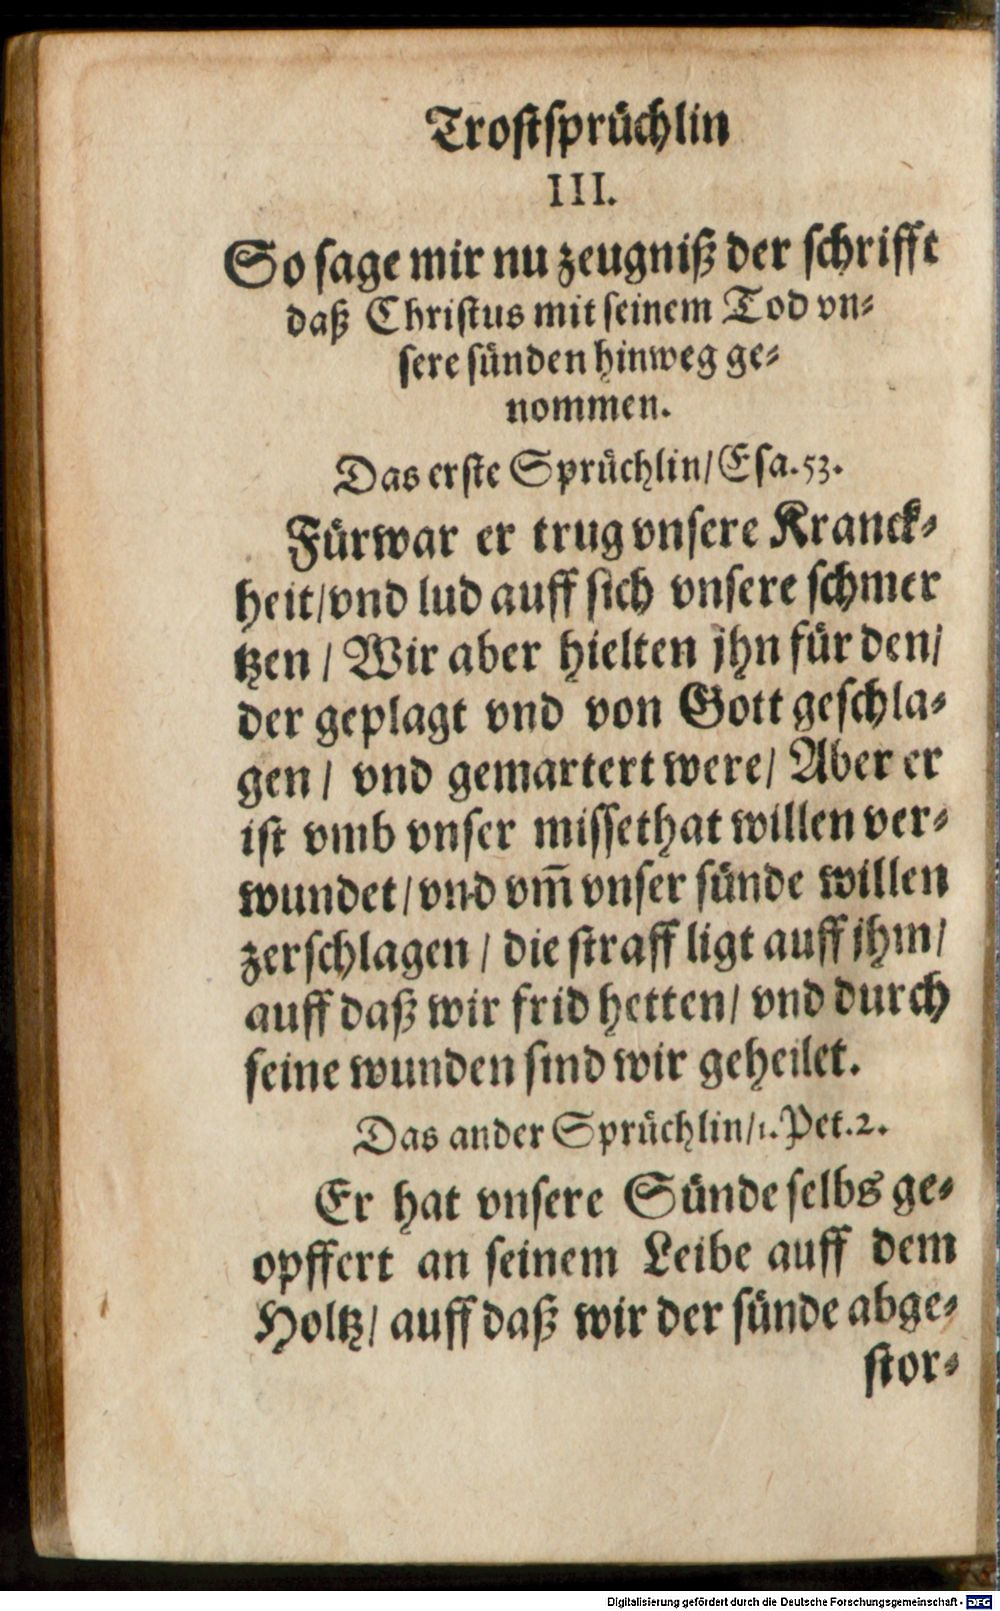 Trostsprüchlin
III.
So sage mir nu zeugniß der schrifft
daß Christus mit seinem Tod vn-
sere sünden hinweg ge-
nommen.
Das erste Sprüchlin/Esa.53.
Fürwar er trug vnsere Kranck-
heit/vnd lud auff sich vnsere schmer
tzen / Wir aber hielten jhn für den/
der geplagt vnd von Gott geschla-
gen / vnd gemartert were/ Aber er
ist vmb vnser missethat willen ver-
wundet/vnd vm̃ vnser sünde willen
zerschlagen / die straff ligt auff jhm/
auff daß wir frid hetten/ vnd durch
seine wunden sind wir geheilet.
Das ander Sprüchlin/1. Pet.2.
Er hat vnsere Sünde selbs ge-
opffert an seinem Leibe auff dem
Holtz/ auff daß wir der sünde abge-
stor-
Digitalisierung gefördert durch die Deutsche Forschungsgemeinschaft - DFG